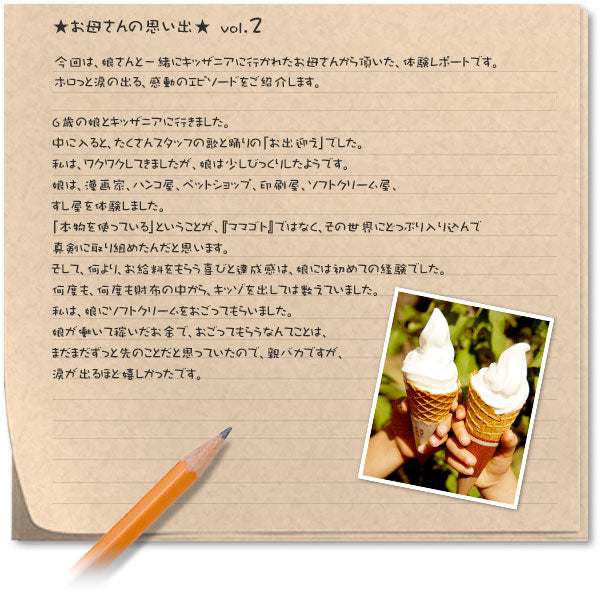 ★お母さんの思い出★ vol.2
今回は、娘さんと一緒にキッザニアに行かれたお母さんから頂いた、体験レポートです。
ホロっと涙の出る、感動のエピソードをご紹介します。
6歳の娘とキッザニアに行きました。
中に入ると、たくさんスタッフの歌と踊りの「お出迎え」でした。
私は、ワクワクしてきましたが、娘は少しびっくりしたようです。
娘は、漫画家、ハンコ屋、ペットショップ、印刷屋、ソフトクリーム屋、
すし屋を体験しました。
「本物を使っている」ということが、『ママゴト』ではなく、その世界にとっぷり入り込んで
真剣に取り組めたんだと思います。
そして、何より、お給料をもらう喜びと達成感は、娘には初めての経験でした。
何度も、何度も財布の中から、キッゾを出しては数えていました。
私は、娘にソフトクリームをおごってもらいました。
娘が働いて稼いだお金で、おごってもらうなんてことは、
まだまだずっと先のことだと思っていたので、親バカですが、
涙が出るほど嬉しかったです。